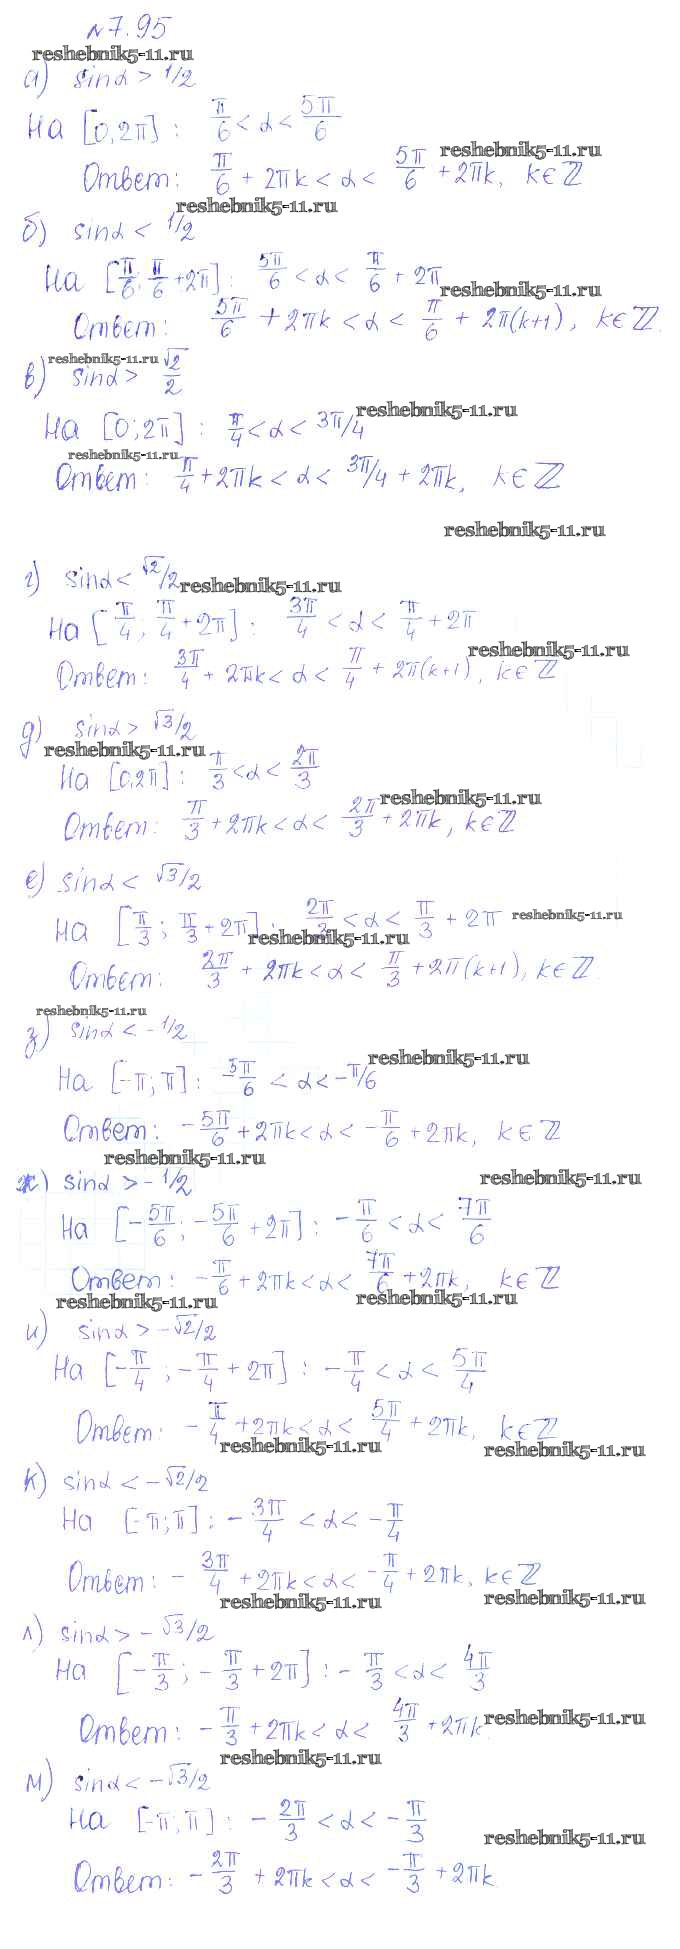 №7.95
reshebnik5-11.ru
а) sinα > 1/2
На [0,2π] : π/6 < α < 5π/6
reshebnik5-11.ru
Ответ: π/6 + 2πk < α < 5π/6 + 2πk, k∈ℤ
reshebnik5-11.ru
б) sinα < 1/2
На [π/6; π/6 + 2π] : 5π/6 < α < π/6 + 2π
reshebnik5-11.ru
Ответ: 5π/6 + 2πk < α < π/6 + 2π(k+1), k∈ℤ.
reshebnik5-11.ru
в) sinα > √2/2
На [0;2π] : π/4 < α < 3π/4
reshebnik5-11.ru
reshebnik5-11.ru
Ответ: π/4 + 2πk < α < 3π/4 + 2πk, k∈ℤ
reshebnik5-11.ru
г) sinα < √2/2
reshebnik5-11.ru
На [π/4; π/4 + 2π] : 3π/4 < α < π/4 + 2π
reshebnik5-11.ru
Ответ: 3π/4 + 2πk < α < π/4 + 2π(k+1), k∈ℤ
д) sinα > √3/2
reshebnik5-11.ru
На [0,2π] : π/3 < α < 2π/3
reshebnik5-11.ru
Ответ: π/3 + 2πk < α < 2π/3 + 2πk, k∈ℤ
е) sinα < √3/2
На [π/3; π/3 + 2π] : 2π/3 < α < π/3 + 2π
reshebnik5-11.ru
reshebnik5-11.ru
Ответ: 2π/3 + 2πk < α < π/3 + 2π(k+1), k∈ℤ.
reshebnik5-11.ru
з) sinα < -1/2
reshebnik5-11.ru
На [-π;π] : -5π/6 < α < -π/6
Ответ: -5π/6 + 2πk < α < -π/6 + 2πk, k∈ℤ
reshebnik5-11.ru
ж) sinα > -1/2
reshebnik5-11.ru
На [-5π/6; -5π/6 + 2π] : -π/6 < α < 7π/6
Ответ: -π/6 + 2πk < α < 7π/6 + 2πk, k∈ℤ
reshebnik5-11.ru
reshebnik5-11.ru
и) sinα > -√2/2
На [-π/4; -π/4 + 2π] : -π/4 < α < 5π/4
Ответ: -π/4 + 2πk < α < 5π/4 + 2πk, k∈ℤ
reshebnik5-11.ru
reshebnik5-11.ru
к) sinα < -√2/2
На [-π;π] : -3π/4 < α < -π/4
Ответ: -3π/4 + 2πk < α < -π/4 + 2πk, k∈ℤ
reshebnik5-11.ru
reshebnik5-11.ru
л) sinα > -√3/2
На [-π/3; -π/3 + 2π] : -π/3 < α < 4π/3
Ответ: -π/3 + 2πk < α < 4π/3 + 2πk.
reshebnik5-11.ru
reshebnik5-11.ru
м) sinα < -√3/2
На [-π;π] : -2π/3 < α < -π/3
reshebnik5-11.ru
Ответ: -2π/3 + 2πk < α < -π/3 + 2πk.